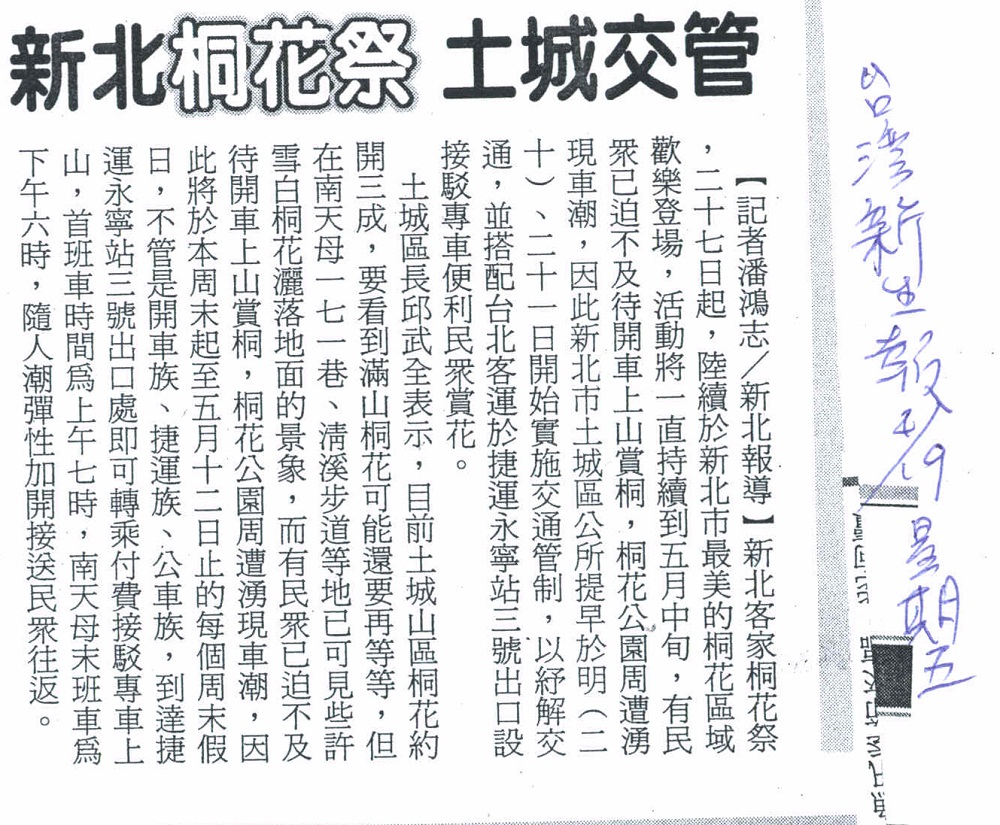 新北桐花祭 土城交管
【記者潘鴻志／新北報導】新北客家桐花祭
，二十七日起，陸續於新北市最美的桐花區域
歡樂登場，活動將一直持續到五月中旬，有民
眾已迫不及待開車上山賞桐，桐花公園周遭湧
現車潮，因此新北市土城區公所提早於明（二
十）、二十一日開始實施交通管制，以紓解交
通，並搭配台北客運於捷運永寧站三號出口設
接駁專車便利民眾賞花。
土城區長邱武全表示，目前土城山區桐花約
開三成，要看到滿山桐花可能還要再等等，但
在南天母一七一巷、清溪步道等地已可見些許
雪白桐花灑落地面的景象，而有民眾已迫不及
待開車上山賞桐，桐花公園周遭湧現車潮，因
此將於本周末起至五月十二日止的每個周末假
日，不管是開車族、捷運族、公車族，到達捷
運永寧站三號出口處即可轉乘付費接駁專車上
山，首班車時間為上午七時，南天母末班車為
下午六時，隨人潮彈性加開接送民眾往返。
台灣新生報 4/19 星期五